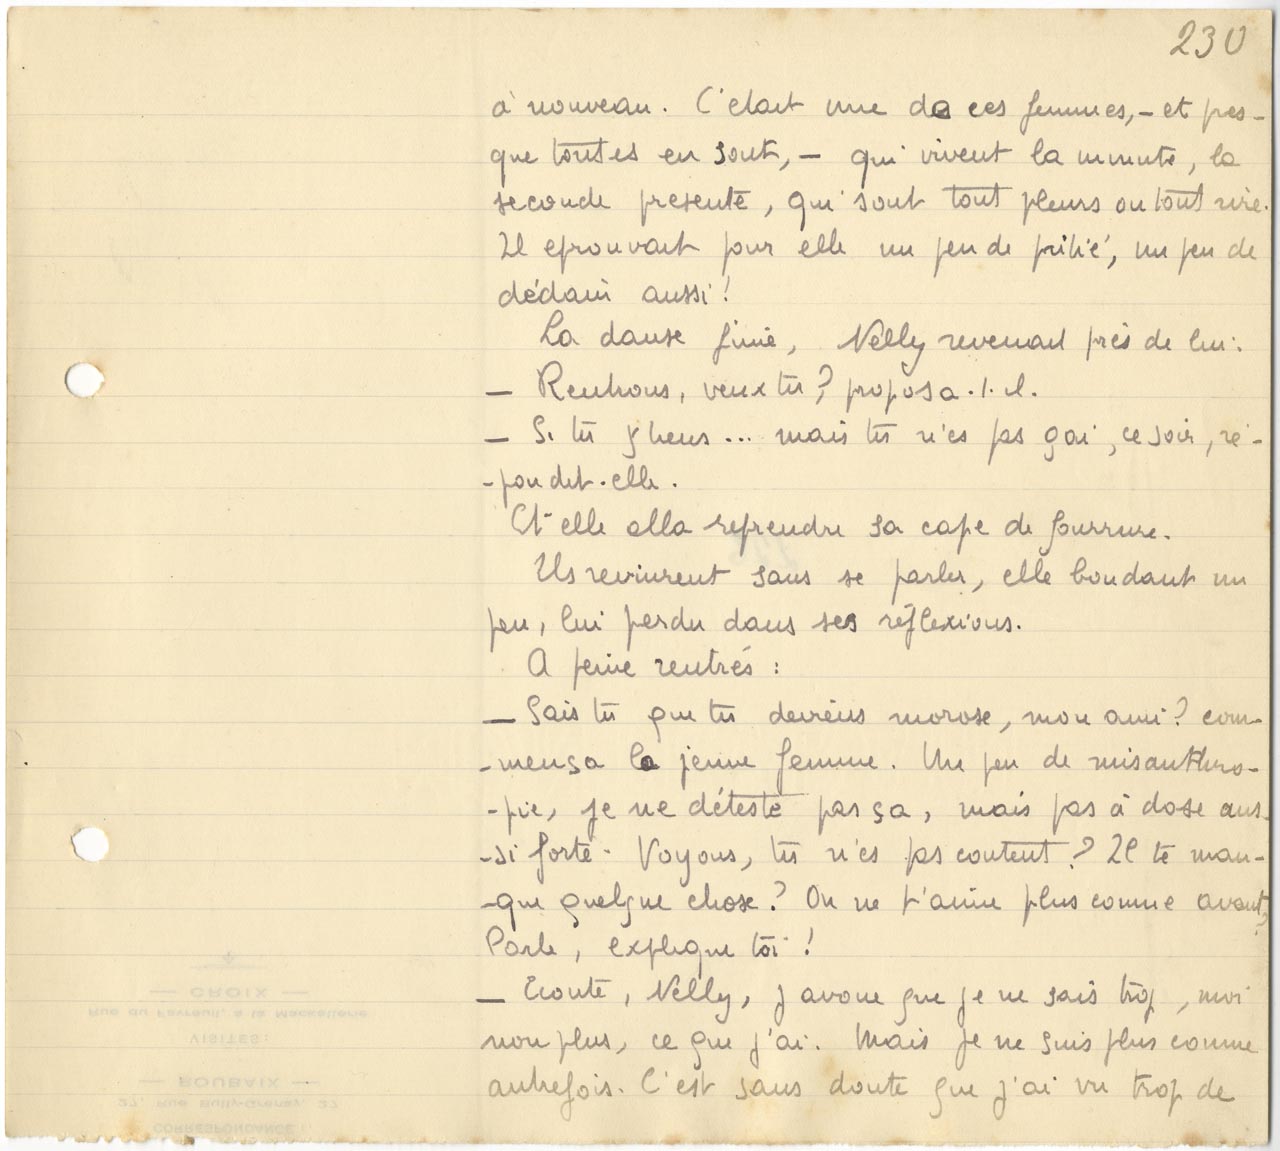 230
à nouveau. C'était une de ces femmes, - et pres-
que toutes en sont, - qui vivent la minute, la
seconde présente, qui sont tout pleurs ou tout rire.
Il eprouvait pour elle un peu de pitié, un peu de
dédain aussi !
La danse finie, Nelly revenait près de lui :
- Rentrons, veux tu ? proposa-t-il.
- Si tu y tiens ... mais tu n'es pas gai, ce soir, ré-
-pondit-elle.
Et elle alla reprendre sa cape de fourrure.
Ils revinrent sans se parler, elle boudant un
peu, lui perdu dans ses réflexions.
A peine rentrés :
- Sais tu que tu deviens morose, mon ami ? com-
-mença la jeune femme. Un peu de misanthro-
-pie, je ne déteste pas ça, mais pas à dose aus-
-si forte. Voyons, tu n'es pas content ? Il te man-
-que quelque chose ? On ne t'aime plus comme avant ?
Parle, explique toi !
- Ecoute, Nelly, j'avoue que je ne sais trop, moi
non plus, ce que j'ai. Mais je ne suis plus comme
autrefois. C'est sans doute que j'ai vu trop de
CROIX
Rue du Favreuil, à la Mackellerie
VISITES :
ROUBAIX
27, Rue Bully-Grenay, 27
CORRESPONDANCE :